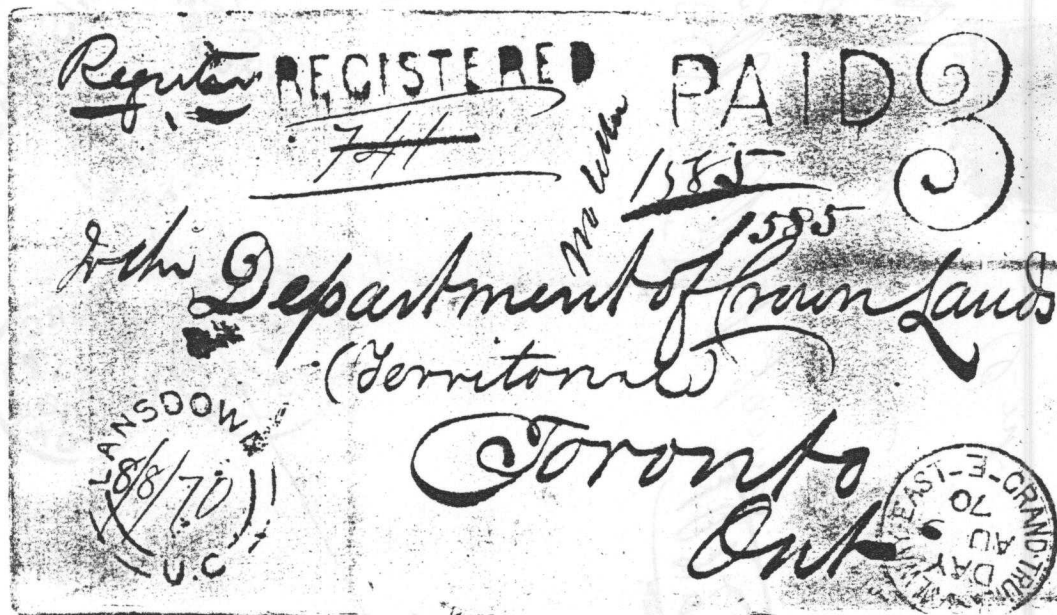 Register REGISTERED PAID 3
741
1585
1585
To the Department of Crown Lands
(Territorial)
Toronto
Ont
LANSDOWNE
8/8/70
U.C
EAST-3-GRAND TRU
DAY
AU 9
70